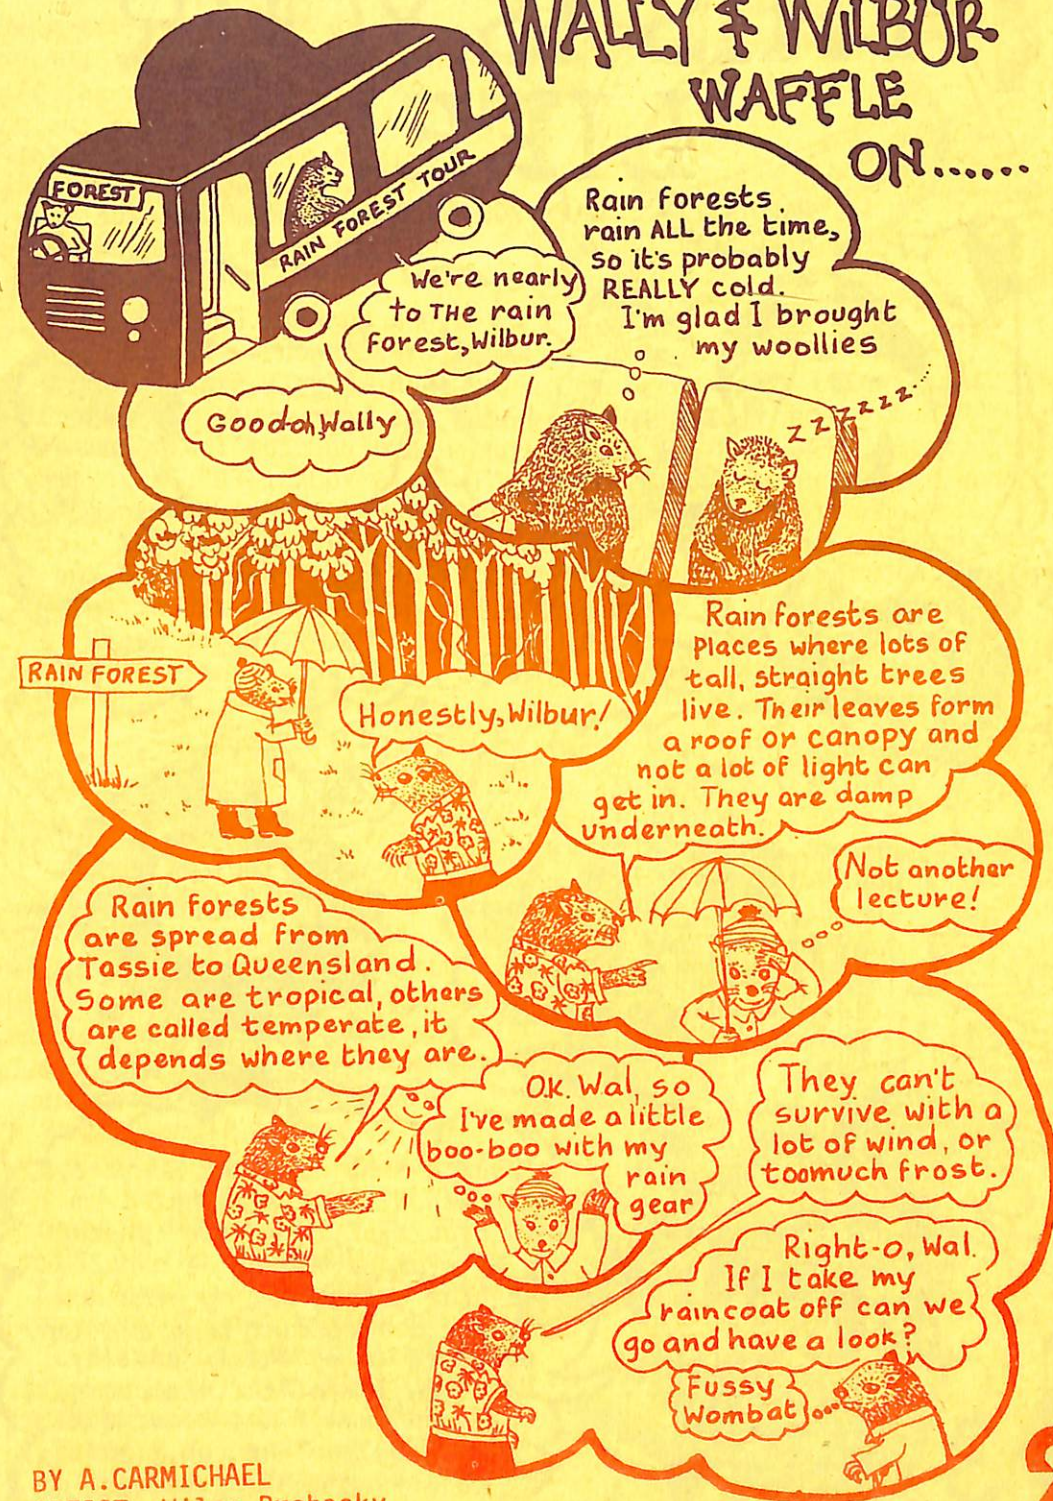 WALLY & WILBUR
WAFFLE
ON......
FOREST
RAIN FOREST TOUR
We're nearly
to THE rain
forest, Wilbur.
Good-oh, Wally
Rain forests
rain ALL the time,
so it's probably
REALLY cold.
I'm glad I brought
my woollies
Z Z Z Z Z Z Z......
RAIN FOREST
Honestly, Wilbur!
Rain forests are
Places where lots of
tall, straight trees
live. Their leaves form
a roof or canopy and
not a lot of light can
get in. They are damp
underneath.
Not another
lecture!
Rain forests
are spread from
Tassie to Queensland.
Some are tropical, others
are called temperate, it
depends where they are.
O.K. Wal, so
I've made a little
boo-boo with my
rain
gear
They can't
survive with a
lot of wind, or
toomuch frost.
Right-o, Wal.
If I take my
raincoat off can we
go and have a look?
Fussy
Wombat
BY A.CARMICHAEL